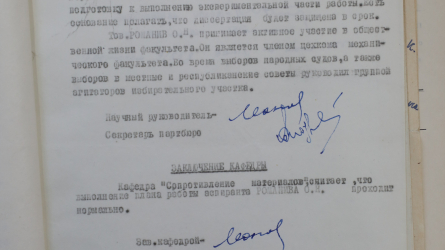 подготовку к выполнению экспериментальной части работы. Есть
основание полагать,что диссертация будет защищена в срок.
Тов.РОМАНЕВ О.Н. принимает активное участие в общест-
венной жизни факультета. Он является членом цехкома механи-
ческого факультета. Во время выборов народных судов,а также
выборов в местные и республиканские советы руководил группой
агитаторов избирательного участка.
Научный руководитель-
Секретарь партбюро
ЗАКЛЮЧЕНИЕ КАФЕДРЫ
Кафедра "Сопротивление материалов"считает ,что
выполнение плана работы аспиранта проходит
нормально.
Зав.кафедрой-